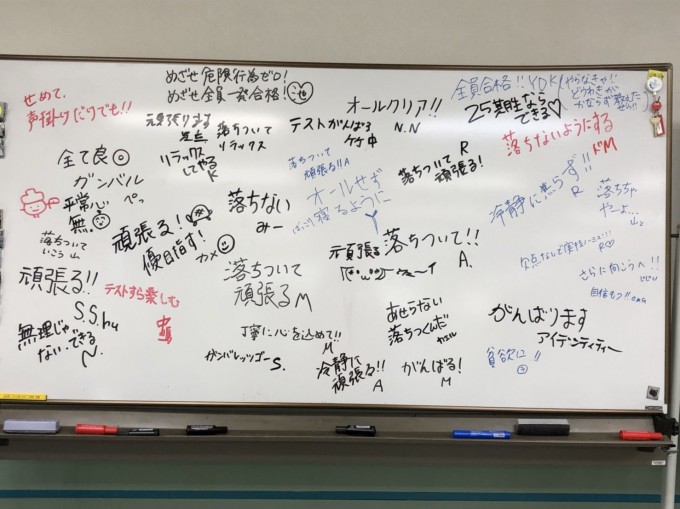 めざせ 危険行為ゼロ!
めざせ 全員一発合格!
せめて、
声掛けだけでも!!
頑張ります
落ち着いて
リラックス
リラックス
してやる
K
オールクリア!!
N.N
テストがんばる
ケケ中
全員合格!!
25期生なら
できる♡
やらなきゃ!
落ちないようにする
ドM
全て良
ガンバル
ぺっ
平常心
無
落ちついて
いこう 山
頑張る!!
S.S.hu
無理じゃ
ない・できる
N.
頑張る!
優目指す!
カメ
テストすら楽しむ
落ちない
みー
落ちついて
頑張る!! A
オールせず
寝るように
Y
落ちついて
頑張る!
R
冷静に焦らず!!
R
落ちちゃ
やーよ…
落ちついて!!
A.
頑張る
落ち着いて
頑張る M
丁寧に心を込めて!!
M
ガンバレッツゴー S.
冷静に
頑張る!!
A
あせらない
落ちつくんだ
がんばる!
M
がんばります
アイデンティティー
さらに向こうへ!!
自信もつ!!
貪欲に!!